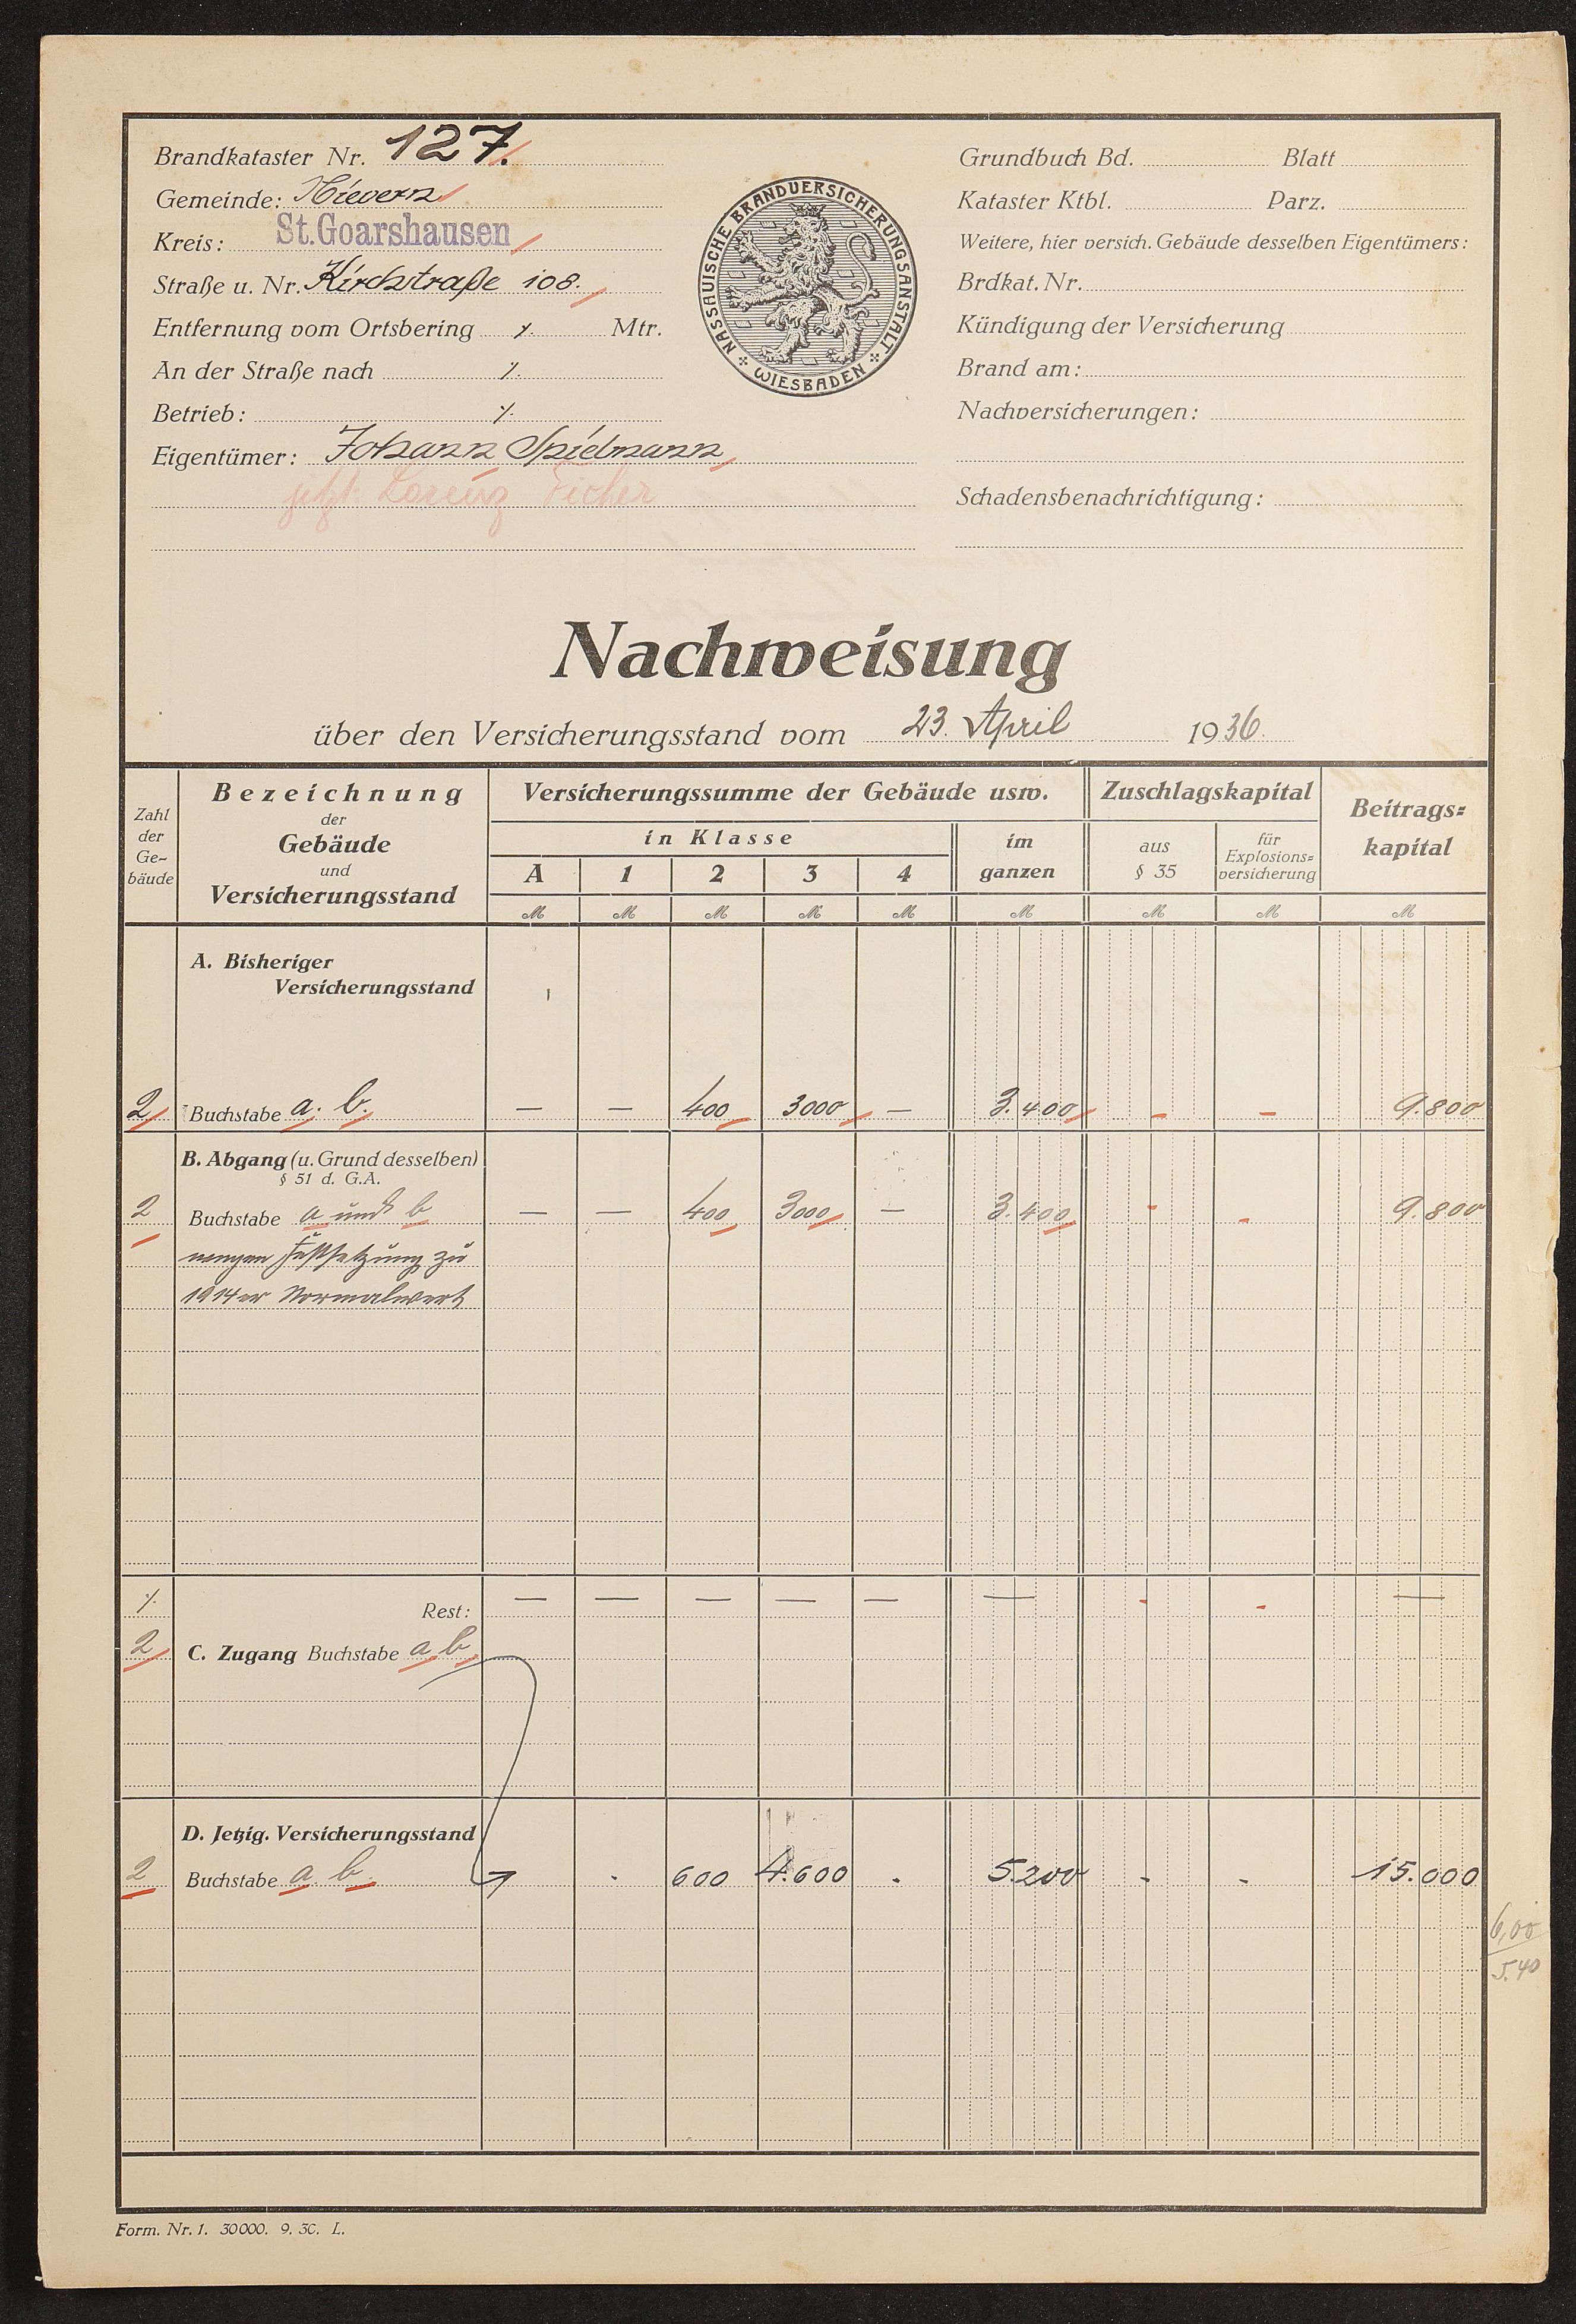 Brandkataster Nr. 127.
Gemeinde: Nievern
Kreis: St. Goarshausen
Straße u. Nr. Kirchstraße 108.
Entfernung vom Ortsbering ·/. Mtr.
An der Straße nach ·/.
Betrieb: ·/.
Eigentümer: Johann Spielmann
jetzt: Lorenz
NASSAUISCHE BRANDVERSICHERUNGSANSTALT
WIESBADEN
Grundbuch Bd. Blatt
Kataster Ktbl. Parz.
Weitere, hier versich. Gebäude desselben Eigentümers:
Brdkat. Nr.
Kündigung der Versicherung
Brand am:
Nachversicherungen:
Schadensbenachrichtigung:
Nachweisung
über den Versicherungsstand vom 23. April 1936.
Zahl der Ge- bäude
Bezeichnung
der
Gebäude
und
Versicherungsstand
Versicherungssumme der Gebäude usw.
in Klasse
A 1 2 3 4
im ganzen
Zuschlagskapital
aus § 35
für Explosions= versicherung
Beitrags= kapital
M M M M M M M M M
A. Bisheriger
Versicherungsstand
2 Buchstabe a. b. — — 400 3000 — 3.400 - - 9.800
B. Abgang (u. Grund desselben)
§ 51 d. G.A.
2 Buchstabe a und b — — 400 3000 — 3.400 - - 9.800
wegen Festsetzung zu
1914er Normalwert
·/. Rest: — — — — — — - - —
2 C. Zugang Buchstabe a b
D. Jetzig. Versicherungsstand
2 Buchstabe a. b. - 600 4.600 - 5.200 - - 15.000
6,00
5.40
Form. Nr. 1. 30000. 9. 30. L.